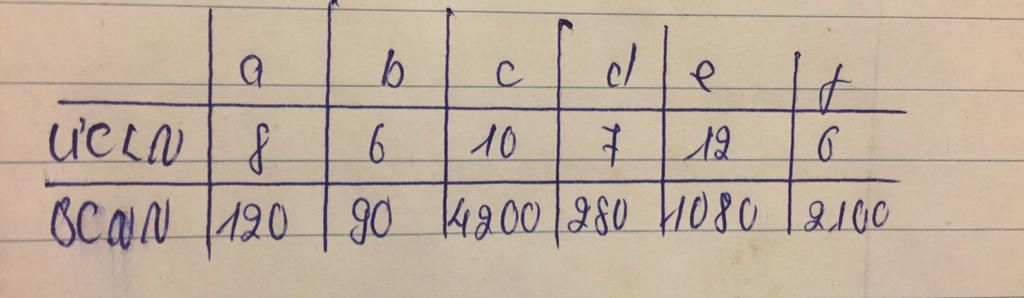 a b c d e f
ƯCLN 8 6 10 7 12 6
BCNN 120 90 4200 280 1080 2100